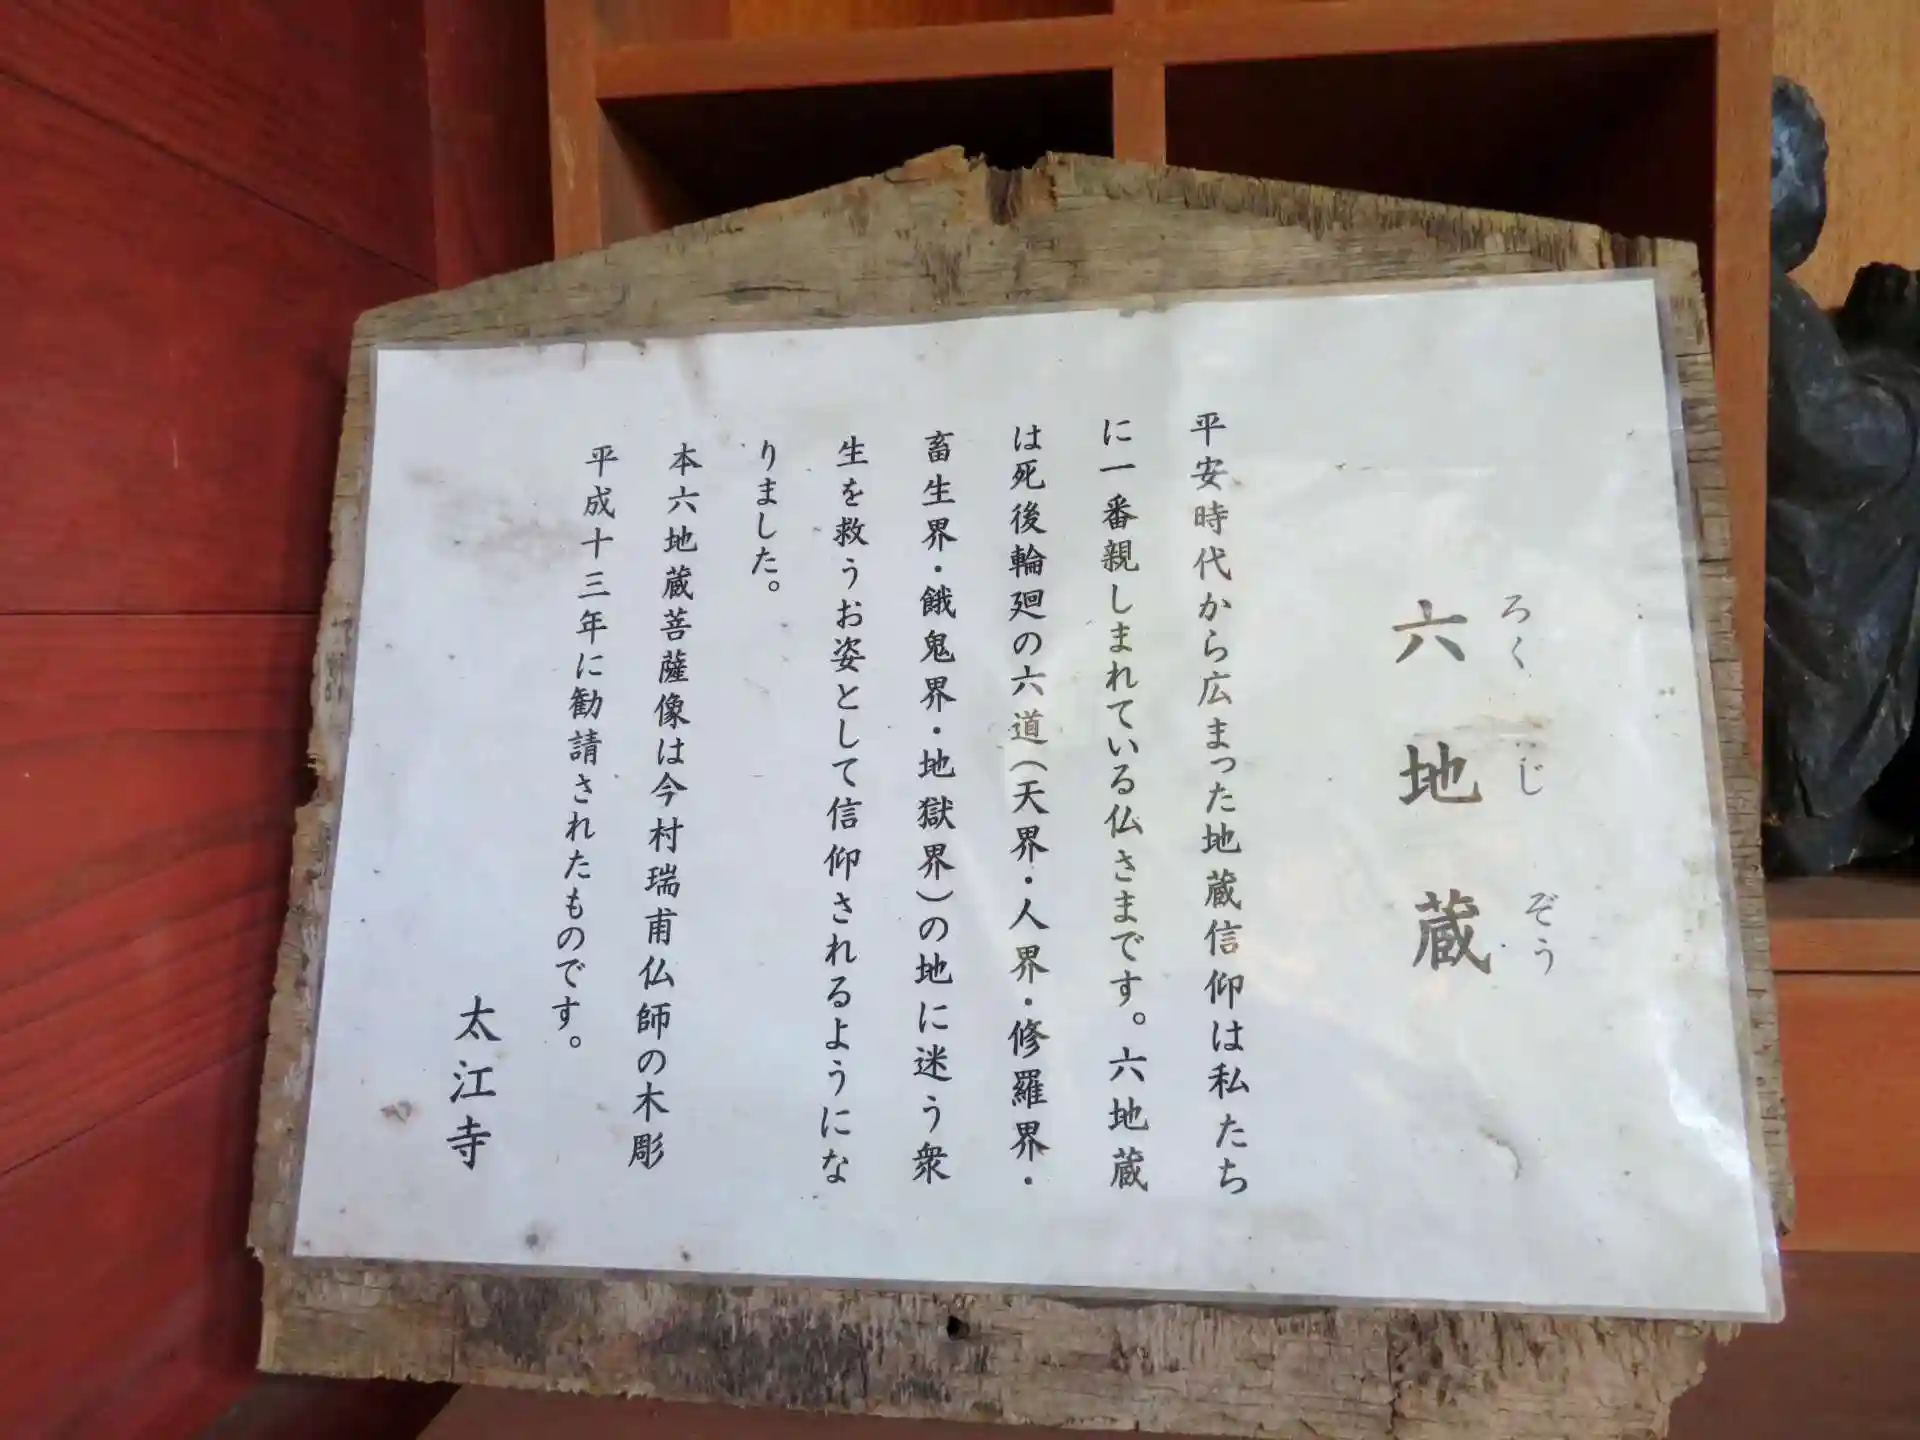 六地蔵
ろくじぞう
平安時代から広まった地蔵信仰は私たち
に一番親しまれている仏さまです。六地蔵
は死後輪廻の六道(天界・人界・修羅界・
畜生界・餓鬼界・地獄界)の地に迷う衆
生を救うお姿として信仰されるようにな
りました。
本六地蔵菩薩像は今村瑞甫仏師の木彫
平成十三年に勧請されたものです。
太江寺